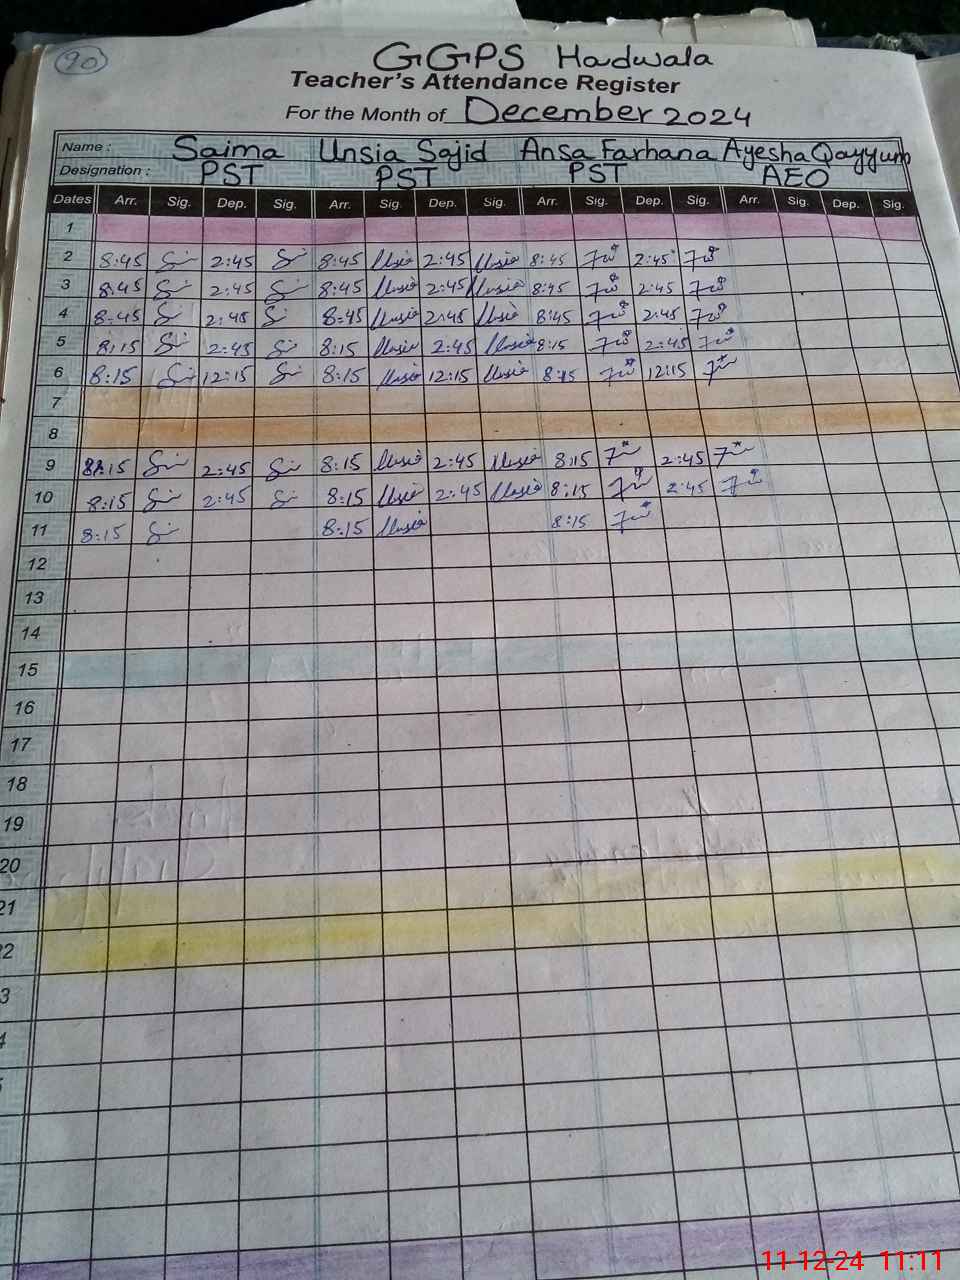 90
GGPS Hardwala
Teacher's Attendance Register
For the Month of December 2024
Name : Saima Unsia Sajid Ansa Farhana Ayesha Qayyum
Designation : PST PST PST AEO
Dates Arr. Sig. Dep. Sig. Arr. Sig. Dep. Sig. Arr. Sig. Dep. Sig. Arr. Sig. Dep. Sig.
1
2 8:45 2:45 8:45 Unsia 2:45 Unsia 8:45 2:45
3 8:45 2:45 8:45 Unsia 2:45 Unsia 8:45 2:45
4 8:45 2:45 8:45 Unsia 2:45 Unsia 8:45 2:45
5 8:15 2:45 8:15 Unsia 2:45 Unsia 8:15 2:45
6 8:15 12:15 8:15 Unsia 12:15 Unsia 8:15 12:15
7
8
9 8:15 2:45 8:15 Unsia 2:45 Unsia 8:15 2:45
10 8:15 2:45 8:15 Unsia 2:45 Unsia 8:15 2:45
11 8:15 8:15 Unsia 8:15
12
13
14
15
16
17
18
19
20
21
2
3
11-12-24 11:11